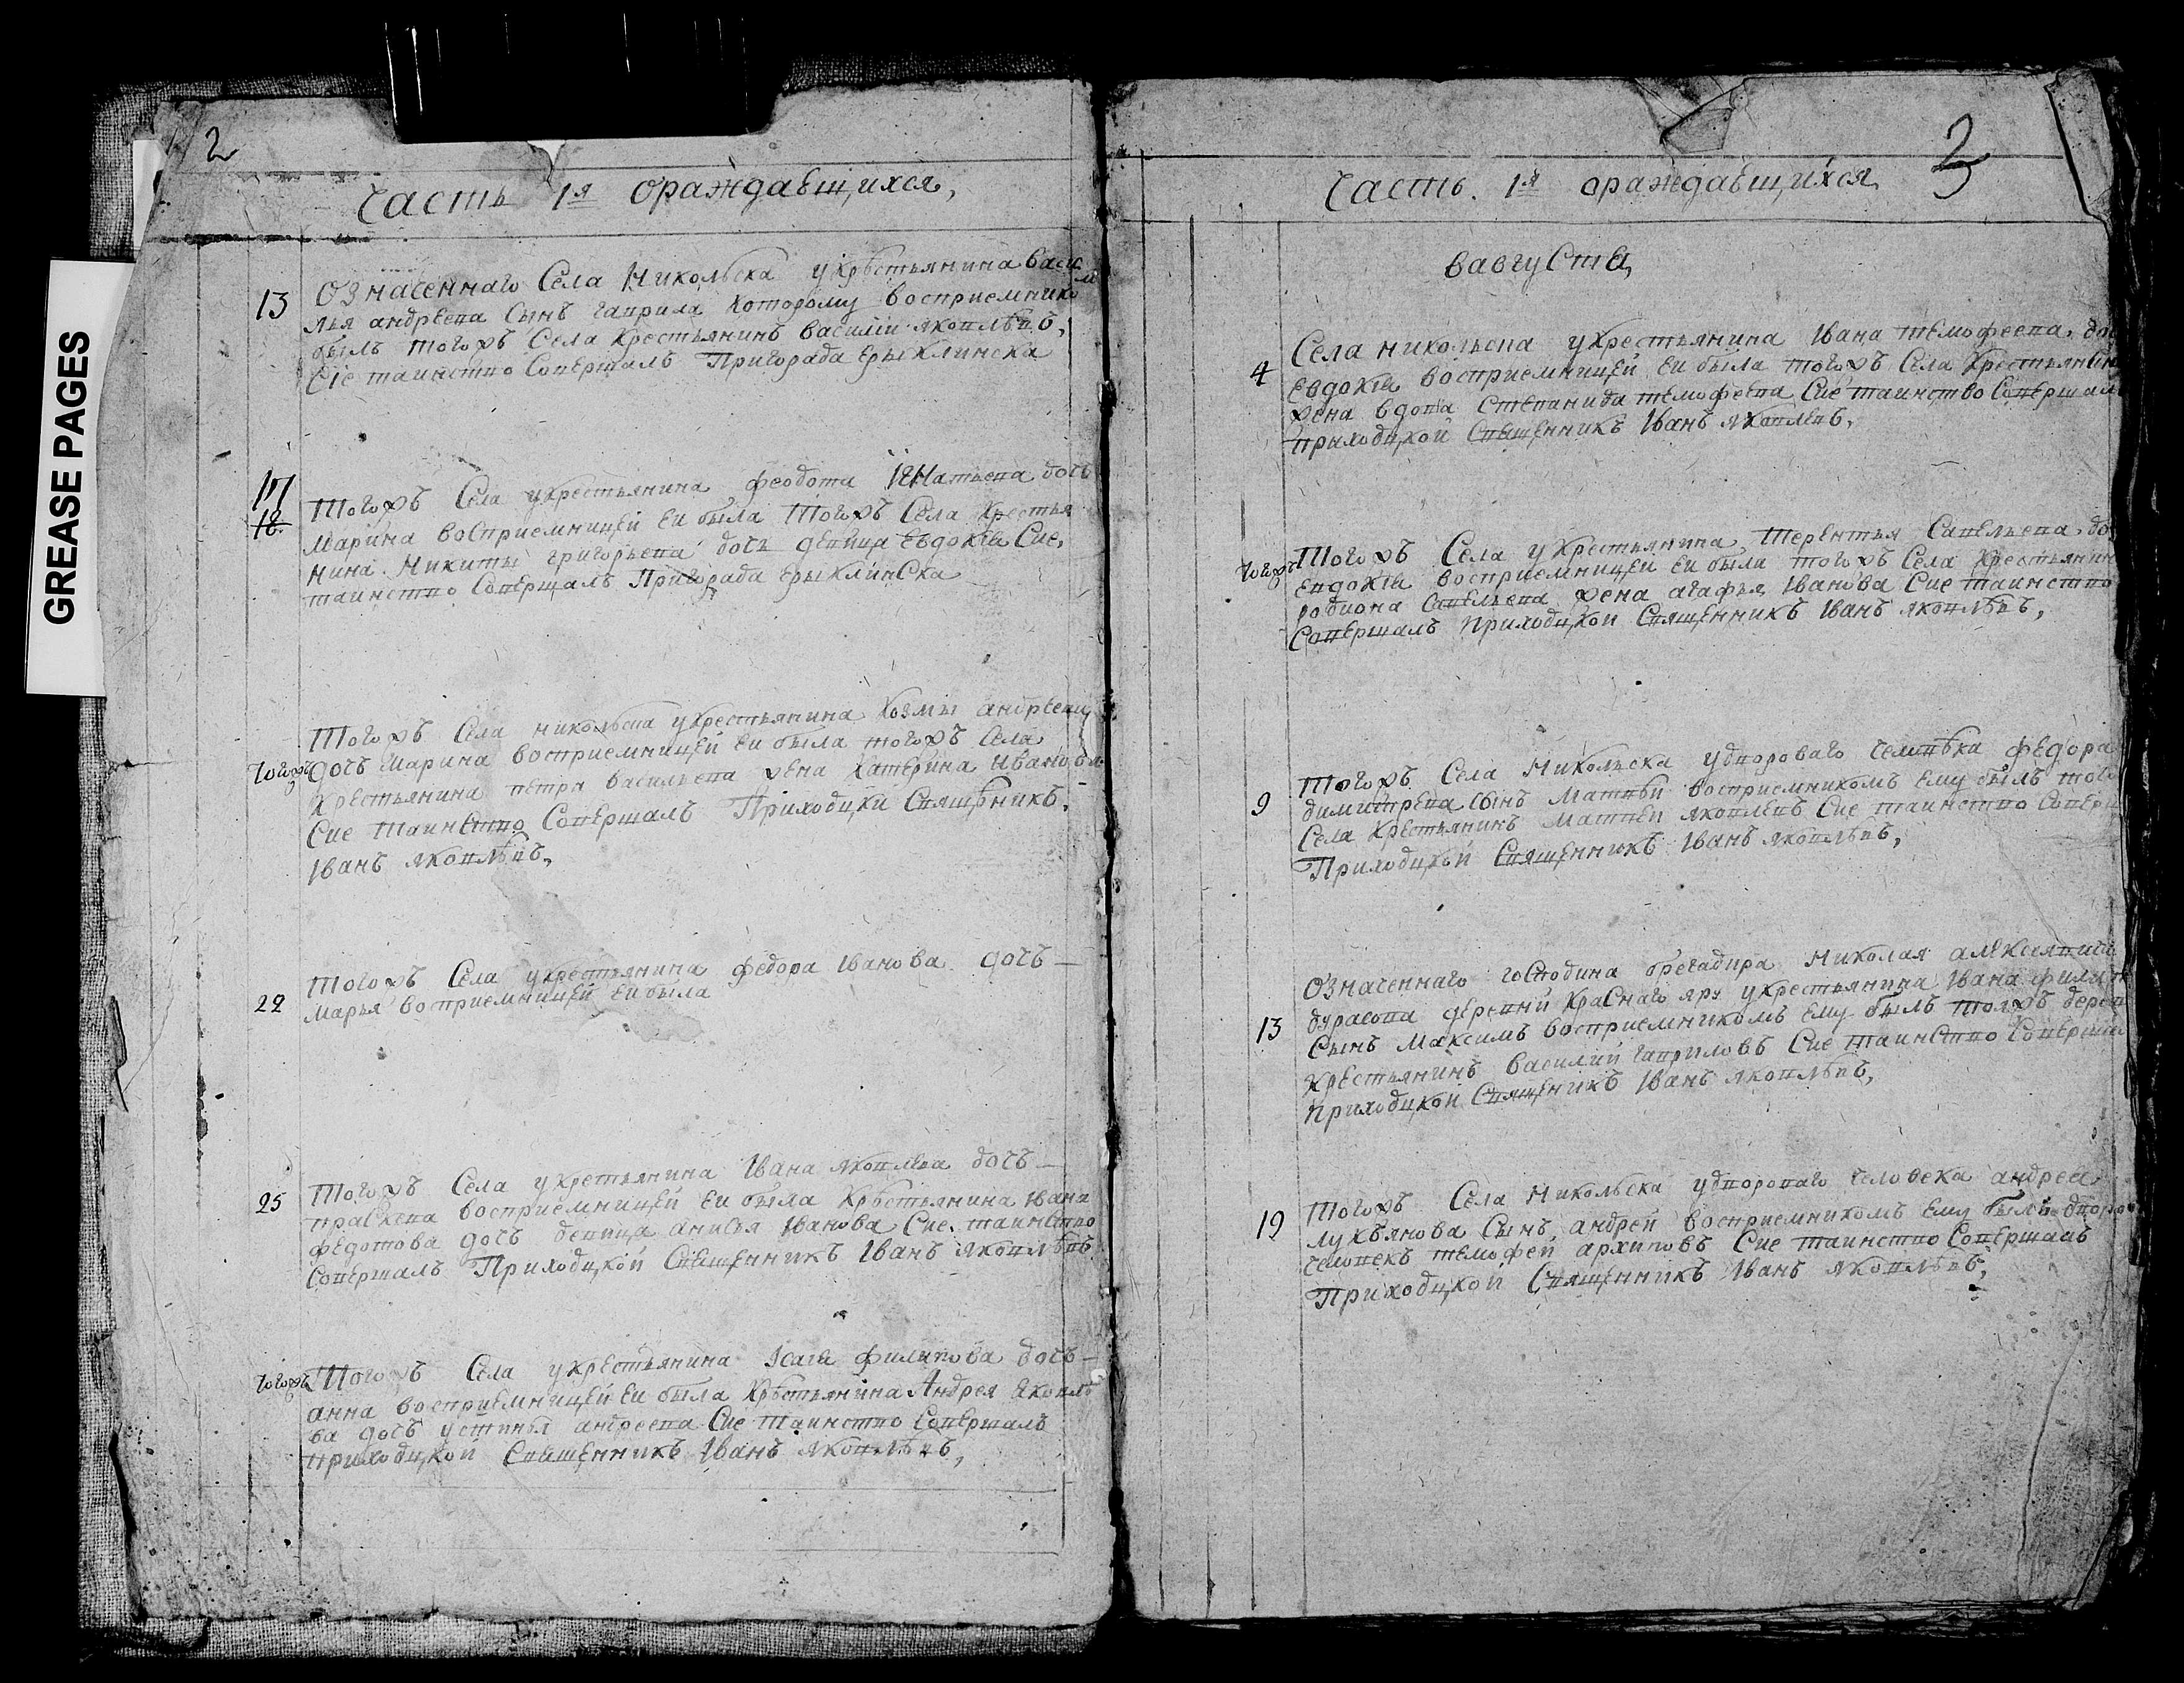 GREASE PAGES
2
Часть 1я ораждавшихся,
13
Означеннаго Села Никольска укрестьянина Васи
лья андреева Сынъ гаврила которому восприемником
былъ тогожъ Села Крестьянинъ василіи яковлѣвъ,
Сіе таинство Совершалъ Пригорада Ерыклинска
17
18
Тогожъ Села укрестьянина феодота Игнатьева дочь
Марина восприемницей Еи была Тогожъ Села Крестья
нина Никиты григорьева дочь девица Евдокія Сие,
таинство Совершалъ Пригорада Ерыклинска
тогожъ
Тогожъ Села никольска укрестьянина Козмы андреева
дочь Марина восприемницей Еи была тогожъ Села
Крестьянина петра васильева жена катерина Иванова
Сие таинство Совершалъ Приходцки Священникъ,
Іванъ яковлѣвъ,
22
Тогожъ Села укрестьянина федора Іванова дочь
Марья восприемницей Еи была
25
Тогожъ Села укретьянина Івана яковлева дочь
прасковя восприемницей Еи была Крестьянина Ивана
федотова дочь девица анисья Іванова Сие таинство
Совершалъ Приходцкой Священникъ Іванъ яковлѣвъ
тогожъ
Тогожъ Села укрестьянина Ісаія филипова дочь
анна восприемницей Еи была Крестьянина Андрея яковле
ва дочь устинья андреева Сие таинство Совершалъ
приходцкой Священникъ Іванъ яковлѣвъ,
3
Часть. 1я ораждавшихся
вавгуста,
4
Села никольска укрестьянина Івана темофеева, доч
Евдокія восприемницей Еи была тогожъ Села Крестьянин
жена вдова Степанида темофеева Сие таинство Совершал
приходцкой Священникъ Іванъ яковлевъ,
тогожъ
Тогожъ Села укрестьянина Терентья Савельева до
Евдокія восприемницей Еи была тогожъ Села Крестьянин
родиона Савельева жена агафья Іванова Сие таинство
Совершалъ приходцкой Священникъ Іванъ яковлѣвъ,
9
Тогожъ Села Никольска удвороваго человѣка федора
димитрева Сынъ Матвѣй восприемникомъ Ему былъ того
Села Крестьянинъ Матвеи яковлевъ Сие таинство Соверш
Приходцкой Священникъ Іванъ яковлѣвъ,
13
Означеннаго господина брегадира Николая алексеявича
дурасова деревни Краснаго яру укрестьянина Івана филип
Сынъ Максимъ восприемникомъ Ему былъ тогожъ дерев
крестьянинъ василий гавриловъ Сие таинство Соверша
приходцкой Священикъ Іванъ яковлѣвъ,
19
Тогожъ Села Никольска удвороваго человека андрея
лукъянова Сынъ, андрей восприемникомъ Ему былъ дворо
человекъ темофей архиповъ Сие таинство Совершалъ
Приходцкой Священникъ Іванъ яковлѣвъ,